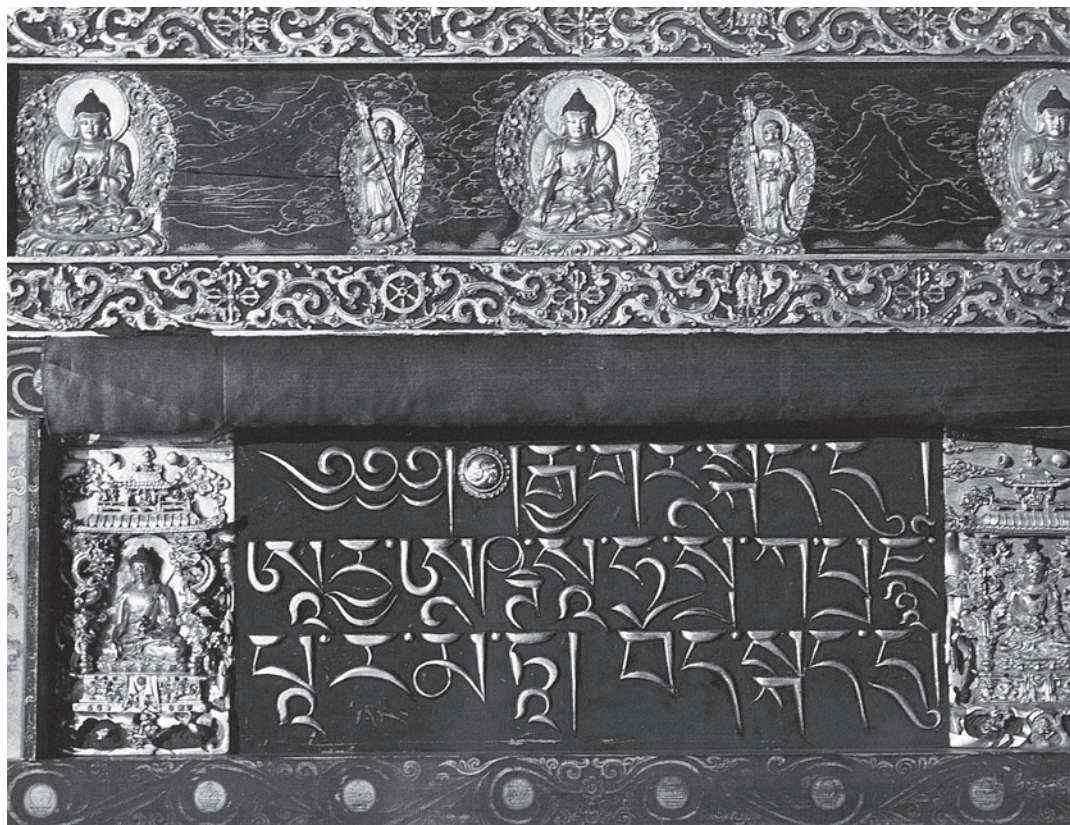 ༄༅༅། །རྒྱ་གར་སྐད་དུ།
ཨཱརྱ་ཨཥྚ་སཱ་ཧ་སྲ་ཀ་པྲཛྙཱ
པཱ་ར་མ་ཏཱ། བད་སྐད་དུ།